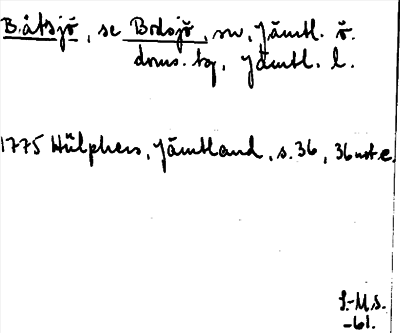 Båtsjö, se Bodsjö, sn, Jämtl. ö.
doms. tg, Jämtl. l.
1775 Hülphers, Jämtland, s. 36, 36 not. e.
S.-M.S.
-61.